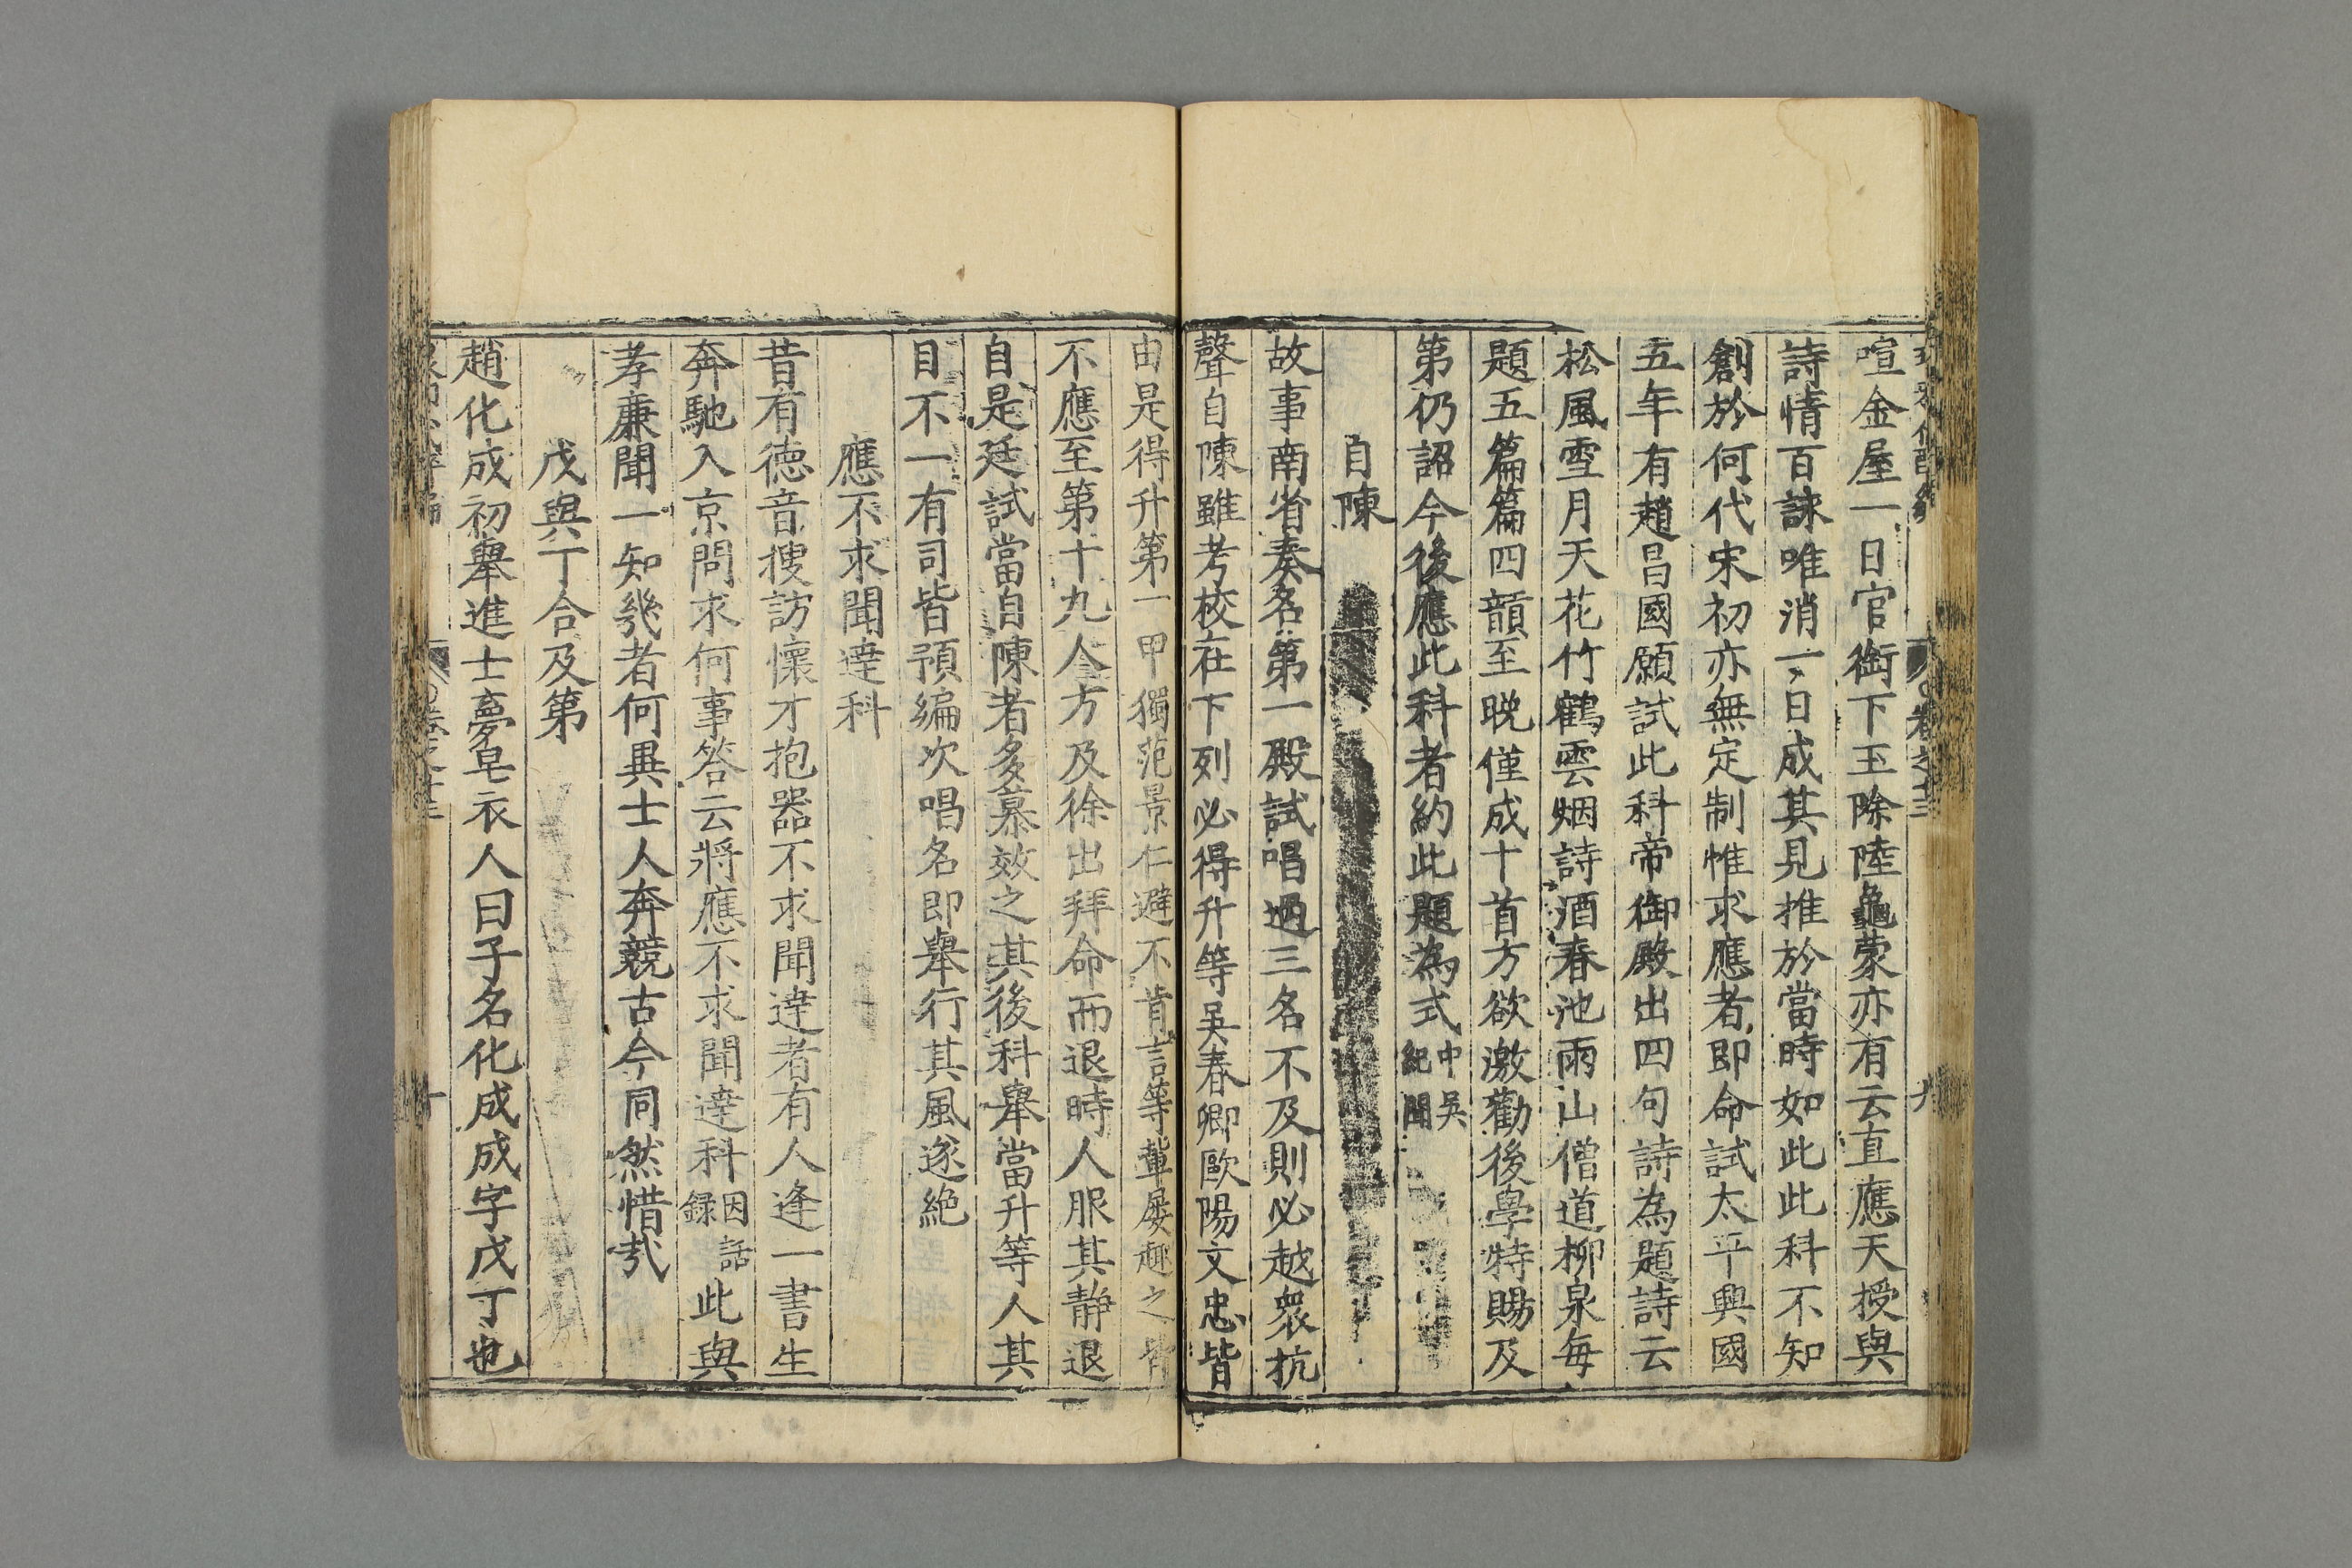 喧金屋一日官銜下玉除陸龜蒙亦有云直應天授與
詩情百詠唯消一日成其見推於當時如此此科不知
創於何代宋初亦無定制惟求應者即命試太平興國
五年有趙昌國願試此科帝御殿出四句詩為題詩云
松風雪月天花竹鶴雲烟詩酒春池雨山僧道柳泉每
題五篇篇四韻至晚僅成十首方欲激勸後學特賜及
第仍詔今後應此科者約此題為式中吳紀聞
自陳
故事南省奏名第一殿試唱過三名不及則必越衆抗
聲自陳雖考校在下列必得升等吳春卿歐陽文忠皆
由是得升第一甲獨范景仁避不肯言等輩屢趣之皆
不應至第十九人方及徐出拜命而退時人服其静退
自是廷試當自陳者多慕效之其後科舉當升等人其
目不一有司皆預編次唱名即舉行其風遂絶
應不求聞達科
昔有德音搜訪懷才抱器不求聞達者有人逢一書生
奔馳入京問求何事答云將應不求聞達科因話録此與
孝廉聞一知幾者何異士人奔競古今同然惜哉
戊與丁合及第
趙化成初舉進士夢皂衣人曰子名化成成字戊丁也
卷之十三